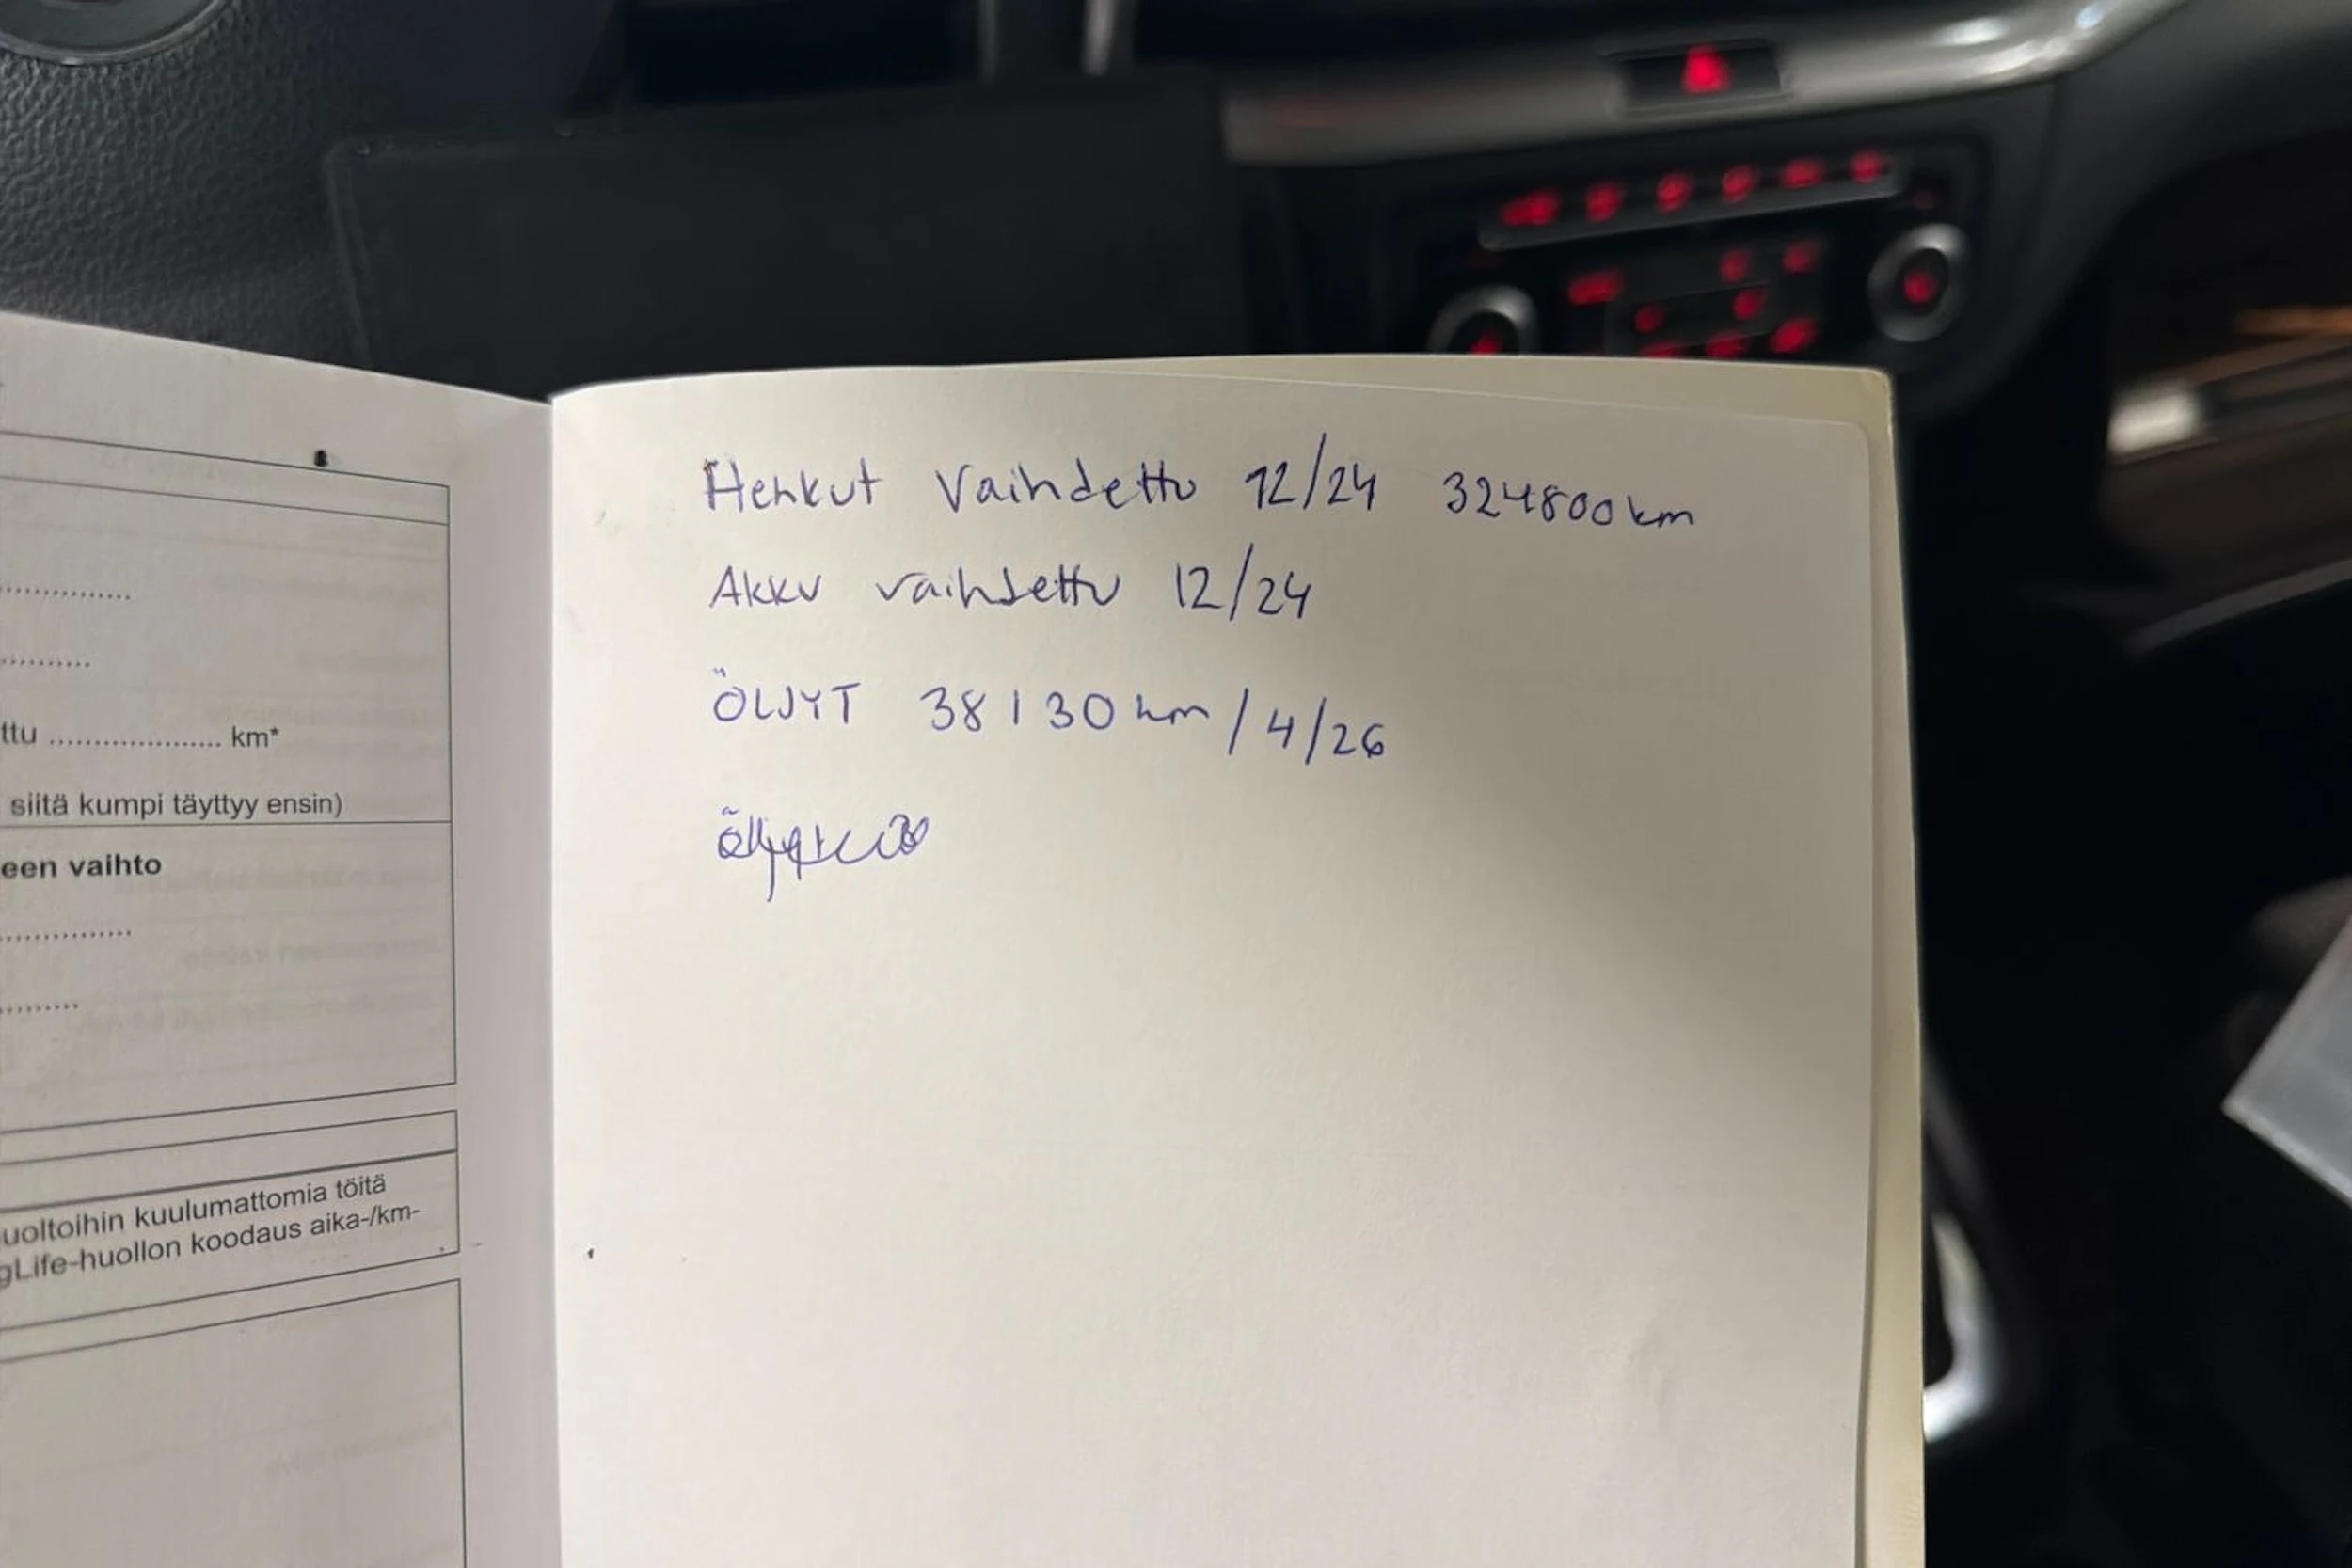 ttu .................... km*
siitä kumpi täyttyy ensin)
een vaihto
uoltoihin kuulumattomia töitä
gLife-huollon koodaus aika-/km-
Henkut Vaihdettu 12/24 324800km
Akku vaihdettu 12/24
ÖLJYT 38130km/4/26